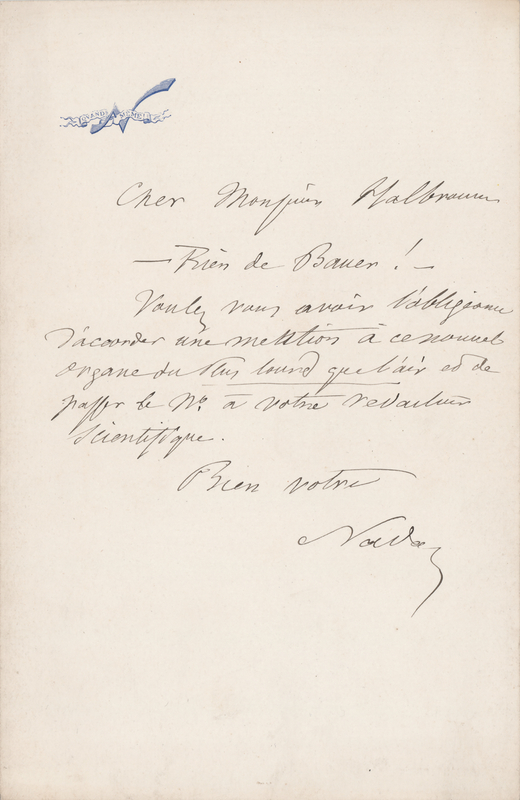 QUAND MÊME
Cher Monsieur Halbronn
— Rien de Bauer ! —
Voulez vous avoir l'obligeance
d'accorder une mention à ce nouvel
organe du Plus lourd que l'air et de
passer le No. à votre rédacteur
scientifique.
Bien votre
Nadar